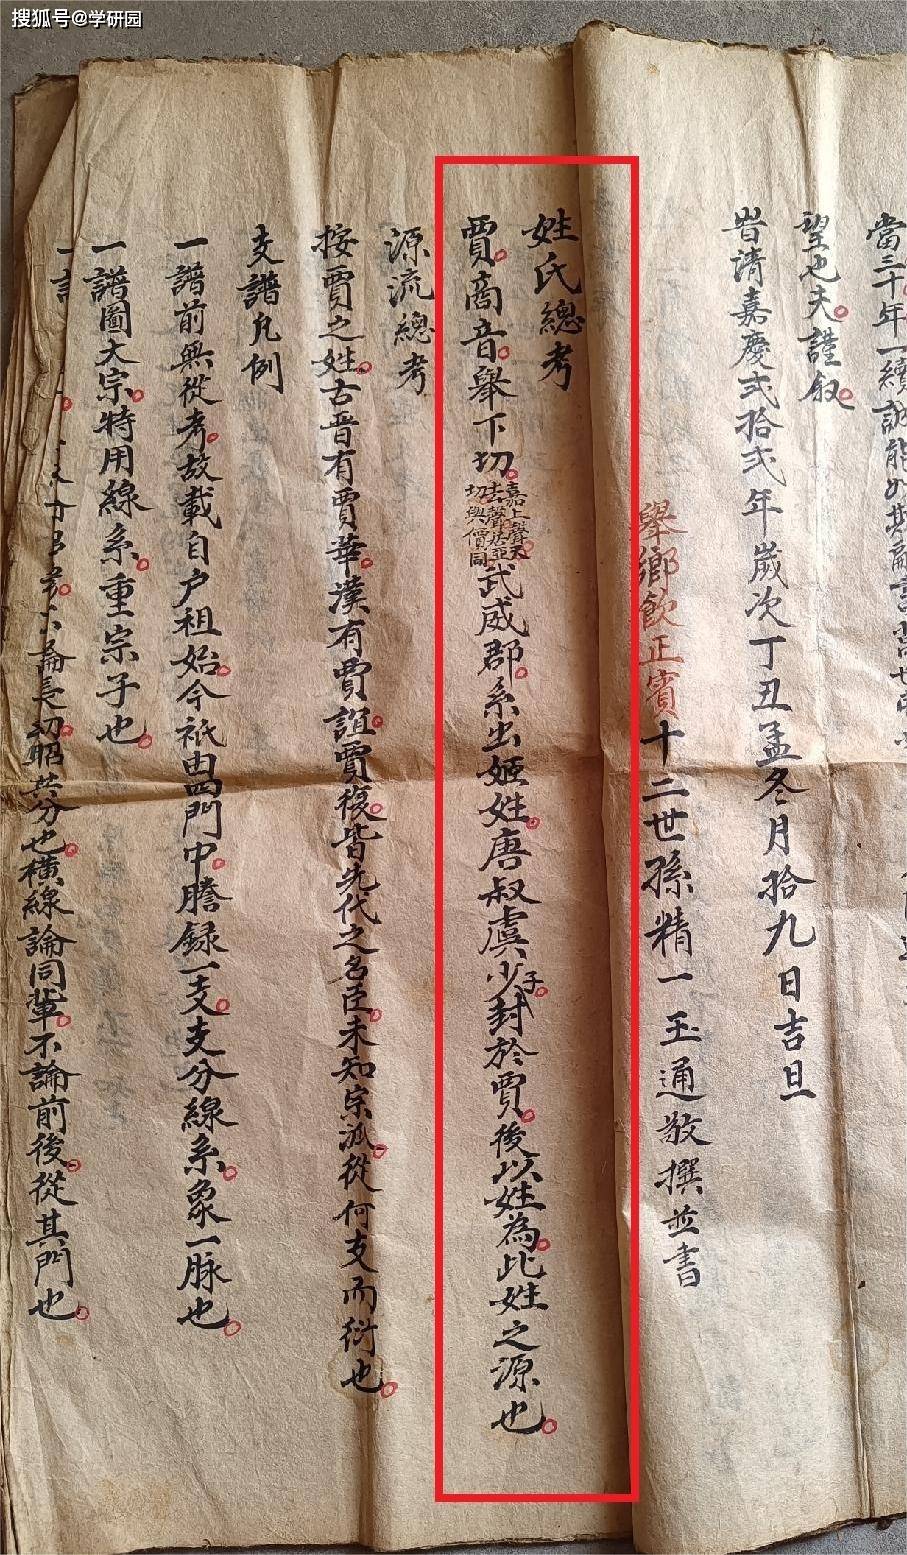 搜狐号@学研园
當三十年一續誠能
望也夫謹叙
旹清嘉慶弍拾弍年歲次丁丑孟冬月拾九日吉旦
舉鄉飲正賓十三世孫精一玉通敬撰並書
姓氏總考
賈商音舉下切嘉上聲又去聲居亞切與價同武威郡系出姬姓唐叔虞少子封於賈後以姓為此姓之源也
源流總考
按賈之姓古晋有賈華漢有賈誼賈復皆先代之名臣未知宗派從何支而衍也
支譜凡例
一譜前無從考故載自户祖始今祇由四門中謄録一支支分線系象一脉也
一譜圖大宗特用線系重宗子也
一譜論長幼昭共分也横線論同輩不論前後從其門也